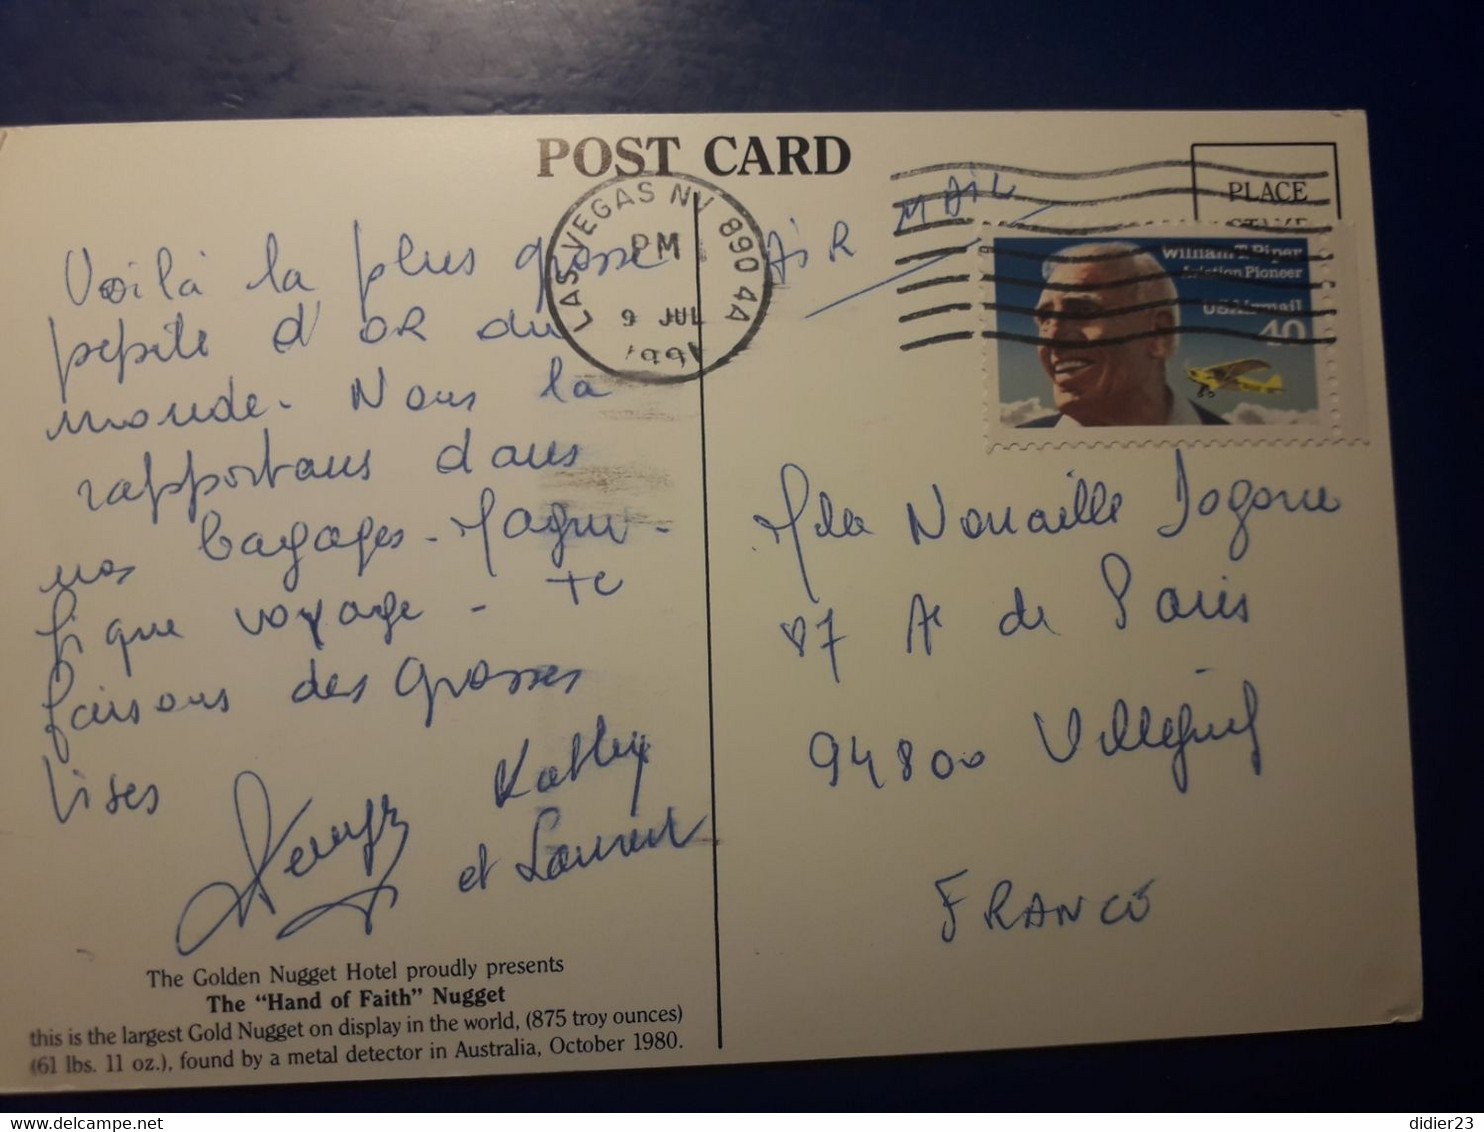 POST CARD
LAS VEGAS NV 890 44
PM
9 JUL
1991
AIR MAIL
PLACE
William T. Piper
Aviation Pioneer
USAirmail
40
Voilà la plus grosse
pepite d'OR du
monde. Nous la
rapportons dans
nos bagages. Magni-
fique voyage - te
faisons des grosses
bises
Kathy
et Laurent
Mlle Nouaille
87 de Paris
94800 Villejuif
FRANCE
The Golden Nugget Hotel proudly presents
The "Hand of Faith" Nugget
this is the largest Gold Nugget on display in the world, (875 troy ounces)
(61 lbs. 11 oz.), found by a metal detector in Australia, October 1980.
delcampe.net
didier23